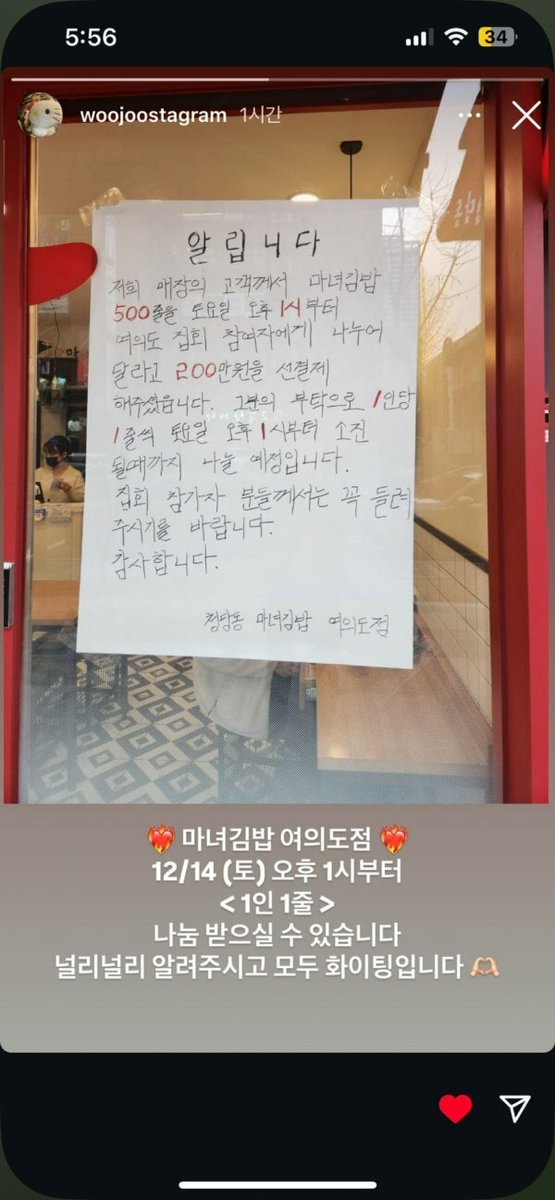 5:56
34
woojoostagram 1시간
알립니다
저희 매장의 고객께서 마녀김밥
500줄을 토요일 오후 1시부터
여의도 집회 참여자에게 나누어
달라고 200만원을 선결제
해주셨습니다. 그분의 부탁으로 1인당
1줄씩 토요일 오후 1시부터 소진
될때까지 나눌 예정입니다.
집회 참가자 분들께서는 꼭 들려
주시기를 바랍니다.
감사합니다.
청담동 마녀김밥 여의도점
❤️‍🔥 마녀김밥 여의도점 ❤️‍🔥
12/14 (토) 오후 1시부터
< 1인 1줄 >
나눔 받으실 수 있습니다
널리널리 알려주시고 모두 화이팅입니다 🫶🏻